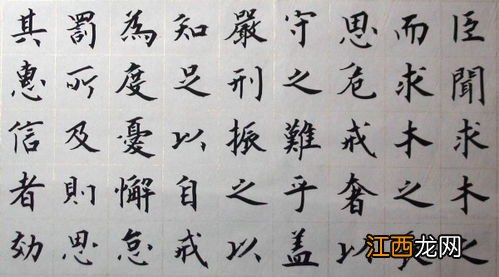 臣聞求木之
而求木之
思危戒奢以
守之難乎蓋
嚴刑振之以
知足以自戒
為度憂懈怠
罰所及則思
其惠信者効
江西龙网